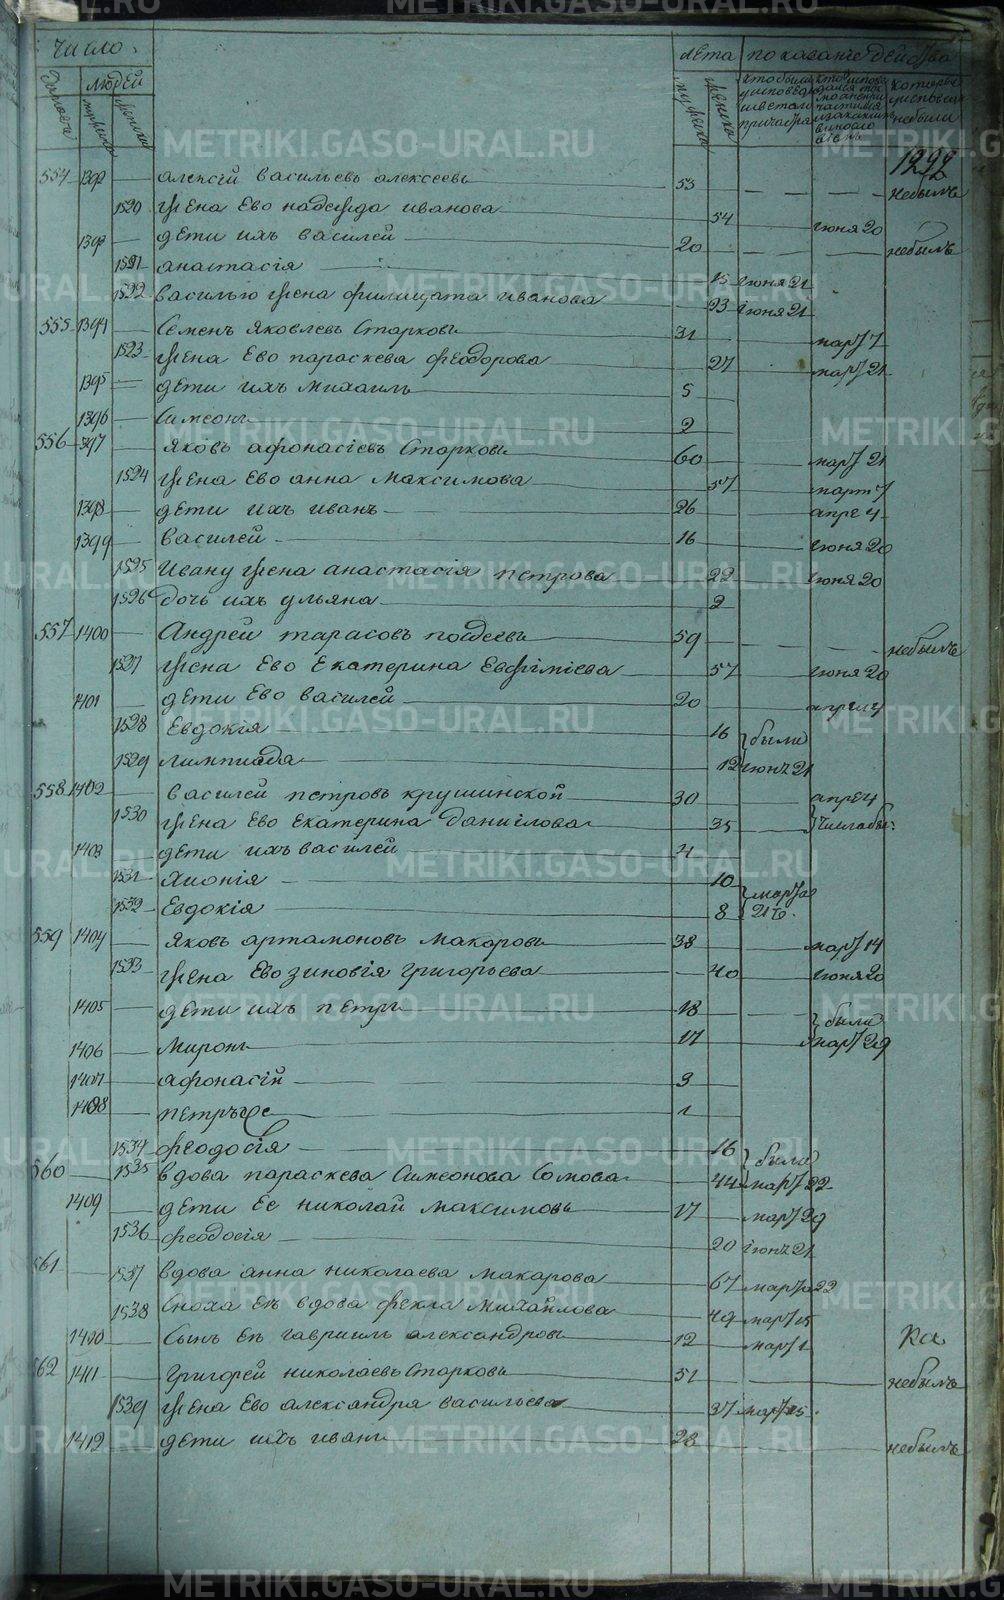 Число. лѣта показанїе дѣйства
Людей
1292
554 1392 алексїй васильевъ алексеевъ 53 небылъ
1520 жена Ево надежда иванова 54 июня 20
1393 дети ихъ василей 20 небылъ
1521 анастасїя 15 июня 21
1522 василью жена филицата иванова 23 июня 21
555 1394 Семенъ Яковлевъ Старковъ 31 март 7
1523 жена Ево параскева феодорова 27 март 21
1395 дети ихъ михаилъ 5
1396 Симеонъ 2
556 1397 Яковъ афонасїевъ Старковъ 60 март 21
1524 жена Ево анна максимова 57 март 7
1398 дети ихъ иванъ 26 апре 4
1399 василей 16 июня 20
1525 ивану жена анастасїя петрова 22 июня 20
1526 дочь ихъ ульяна 2
557 1400 Андрей тарасовъ 59 небылъ
1527 жена Ево Екатерина Евфимїева 57 июня 20
1401 дети Ево василей 20 апрел 4
1528 Евдокїя 16 были
1529 лимпиада 12 июня 21
558 1402 василей петровъ крушинской 30 апре 4
1530 жена Ево Екатерина данилова 35
1403 дети ихъ василей 4
1531 Хионїя 10 марта
1532 Евдокїя 8 21 ч.
559 1404 Яковъ артамоновъ макаровъ 38 март 14
1533 жена Ево зиновїя григорьева 40 июня 20
1405 дети ихъ петръ 18 были
1406 миронъ 17 март 29
1407 афонасїй 3
1408 петръ 1
1534 феодосїя 16 были
560 1535 вдова параскева Симеонова Сомова 44 март 22
1409 дети Ее николай максимовъ 17 март 29
1536 феодосїя 20 июня 21
561 1537 вдова анна николаева макарова 67 марта 22
1538 Сноха Еѣ вдова фекла михайлова 49 март 15
1410 Сынъ Еѣ гавриилъ александровъ 12 март 1
562 1411 Григорей николаевъ Старковъ 51 небылъ
1539 жена Ево александра васильева 37 март 15
1412 дети ихъ иванъ 28 небылъ
METRIKI.GASO-URAL.RU